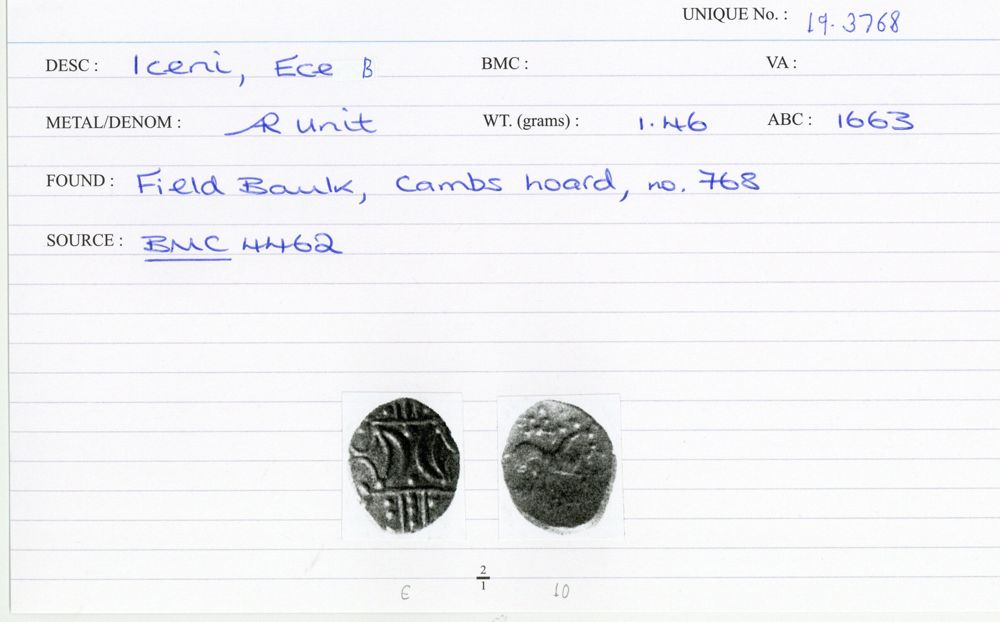 UNIQUE No. : 19.3768
DESC : Iceni, Ece B BMC : VA :
METAL/DENOM : AR unit WT. (grams) : 1.46 ABC : 1663
FOUND : Field Baulk, Cambs hoard, no. 768
SOURCE : BMC 4462
2
1
E 10